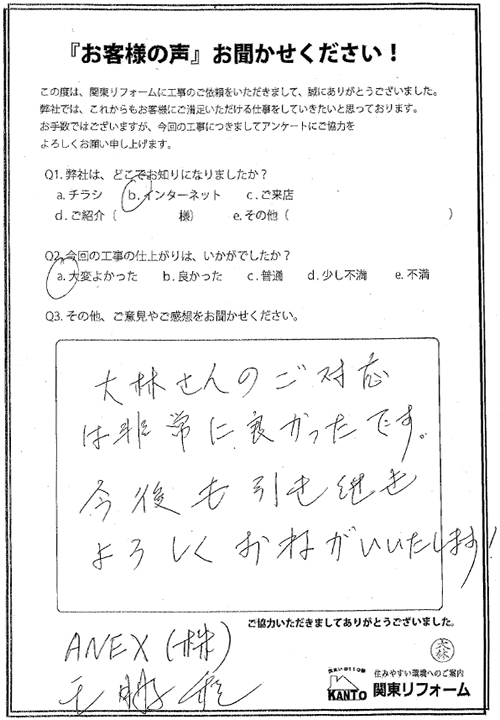 『お客様の声』お聞かせください！
この度は、関東リフォームに工事のご依頼をいただきまして、誠にありがとうございました。
弊社では、これからもお客様にご満足いただける仕事をしていきたいと思っております。
お手数ではございますが、今回の工事につきましてアンケートにご協力を
よろしくお願い申し上げます。
Q1. 弊社は、どこでお知りになりましたか？
a. チラシ　b. インターネット　c. ご来店
d. ご紹介（　　　様）　e. その他（　　　）
Q2. 今回の工事の仕上がりは、いかがでしたか？
a. 大変よかった　b. 良かった　c. 普通　d. 少し不満　e. 不満
Q3. その他、ご意見やご感想をお聞かせください。
大林さんのご対応
は非常に良かったです。
今後も引き継き
よろしくおねがいいたします！
ご協力いただきましてありがとうございました。
ANEX（株）
大林
KANTO
住みやすい環境へのご案内
関東リフォーム